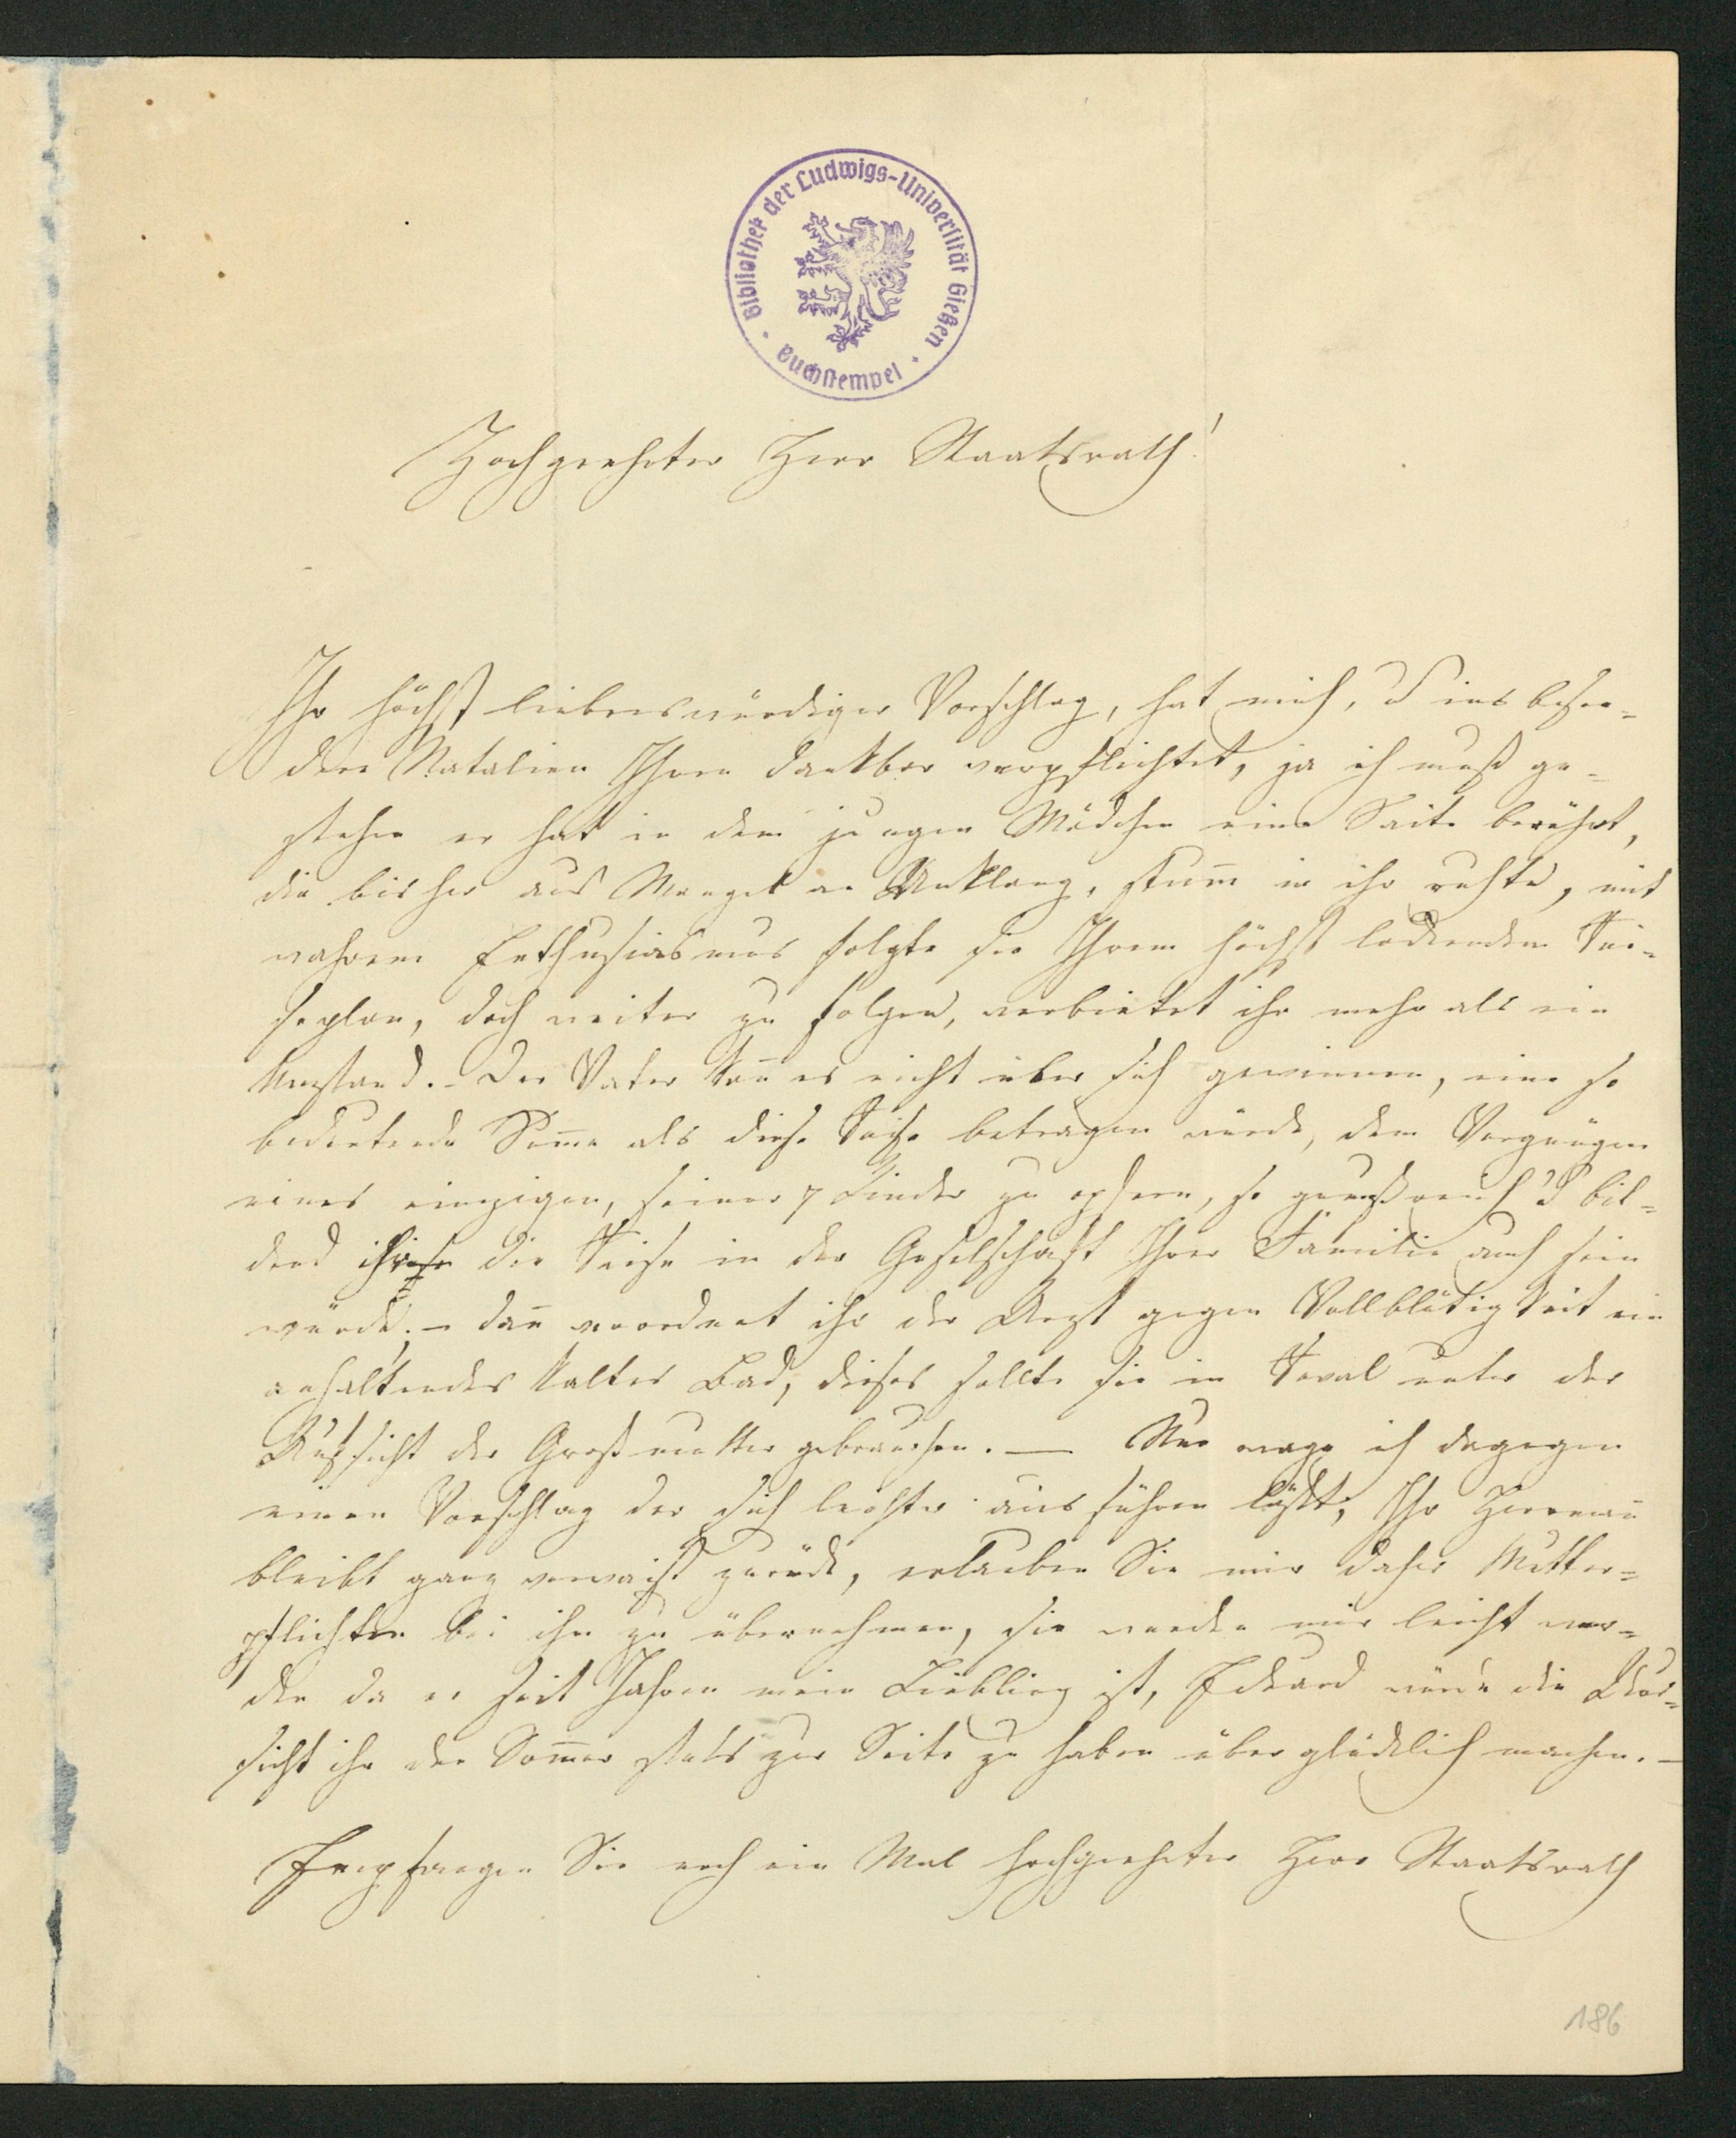 Bibliothek der Ludwigs-Universität Gießen
Buchstempel
Hochgeehrter Herr Staatsrath!
Ihr höchst liebenswürdiger Vorschlag, hat mich, u ins beson=
dere Natalien Ihnen dankbar verpflichtet, ja ich muß ge=
stehen er hat in dem jungen Mädchen eine Saite berührt,
die bisher aus Mangel an Anklang, stum̅ in ihr ruhte, mit
wahrem Enthusiasmus folgte sie Ihrem höchst lockenden Rei=
seplan, doch weiter zu folgen, verbietet ihr mehr als ein
Umstand. – Der Vater kan̅ es nicht über sich gewinnen, eine so
bedeutende Som̅e als diese Reise betragen würde, dem Vergnügen
eines einzigen, seiner 7 Kinder zu opfern, so genußreich u bil=
dend die Reise in der Geselschaft Ihrer Familie auch sein
würde. – dan̅ verordnet ihr der Arzt gegen Vollblütigkeit ein
anhaltendes kaltes Bad, dieses sollte sie in Reval unter der
Aufsicht der Großmutter gebrauchen. — Nun wage ich dagegen
einen Vorschlag der sich leichter ausführen läßt, Ihr Herman̅
bleibt ganz verwaist zurück, erlauben Sie mir daher Mutter=
pflichten bei ihm zu übernehmen, sie werden mir leicht wer=
den da er seit Jahren mein Liebling ist, Eduard würde die Aus=
sicht ihn den Som̅er stets zur Seite zu haben überglücklich machen. –
Empfangen Sie noch ein Mal hochgeehrter Herr Staatsrath
186